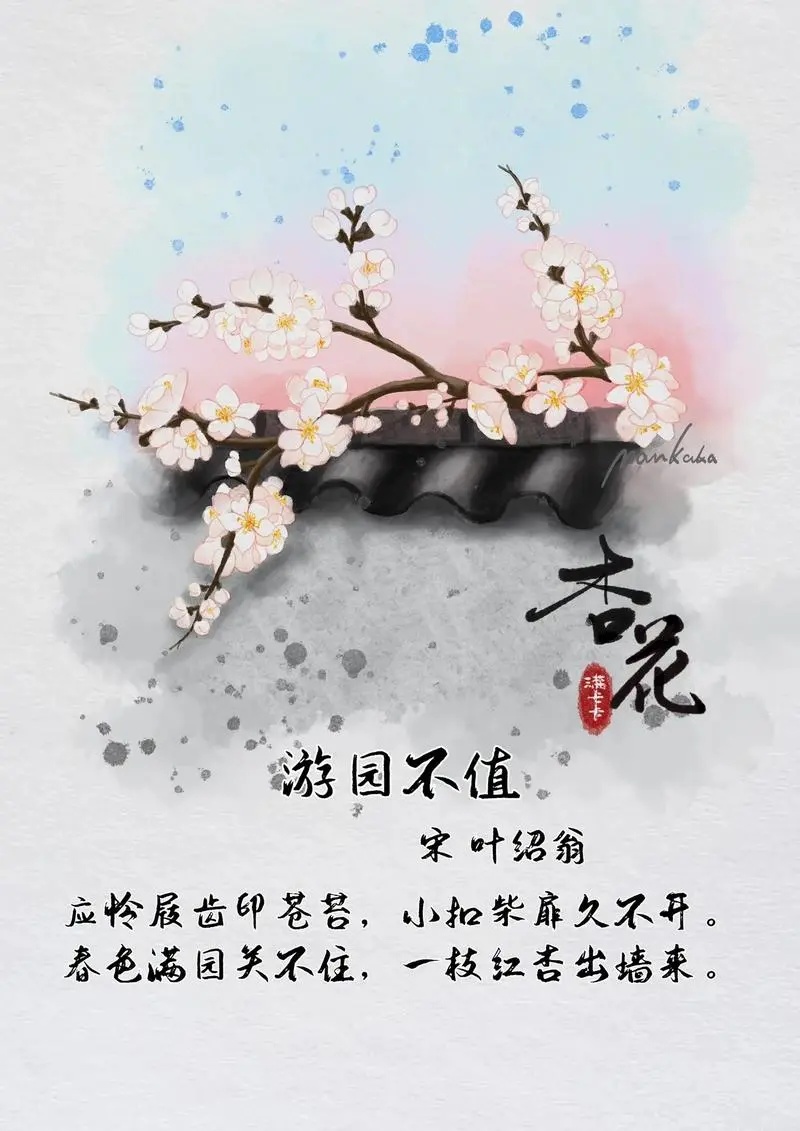 杏花
满卡卡
游园不值
宋 叶绍翁
应怜屐齿印苍苔，小扣柴扉久不开。
春色满园关不住，一枝红杏出墙来。